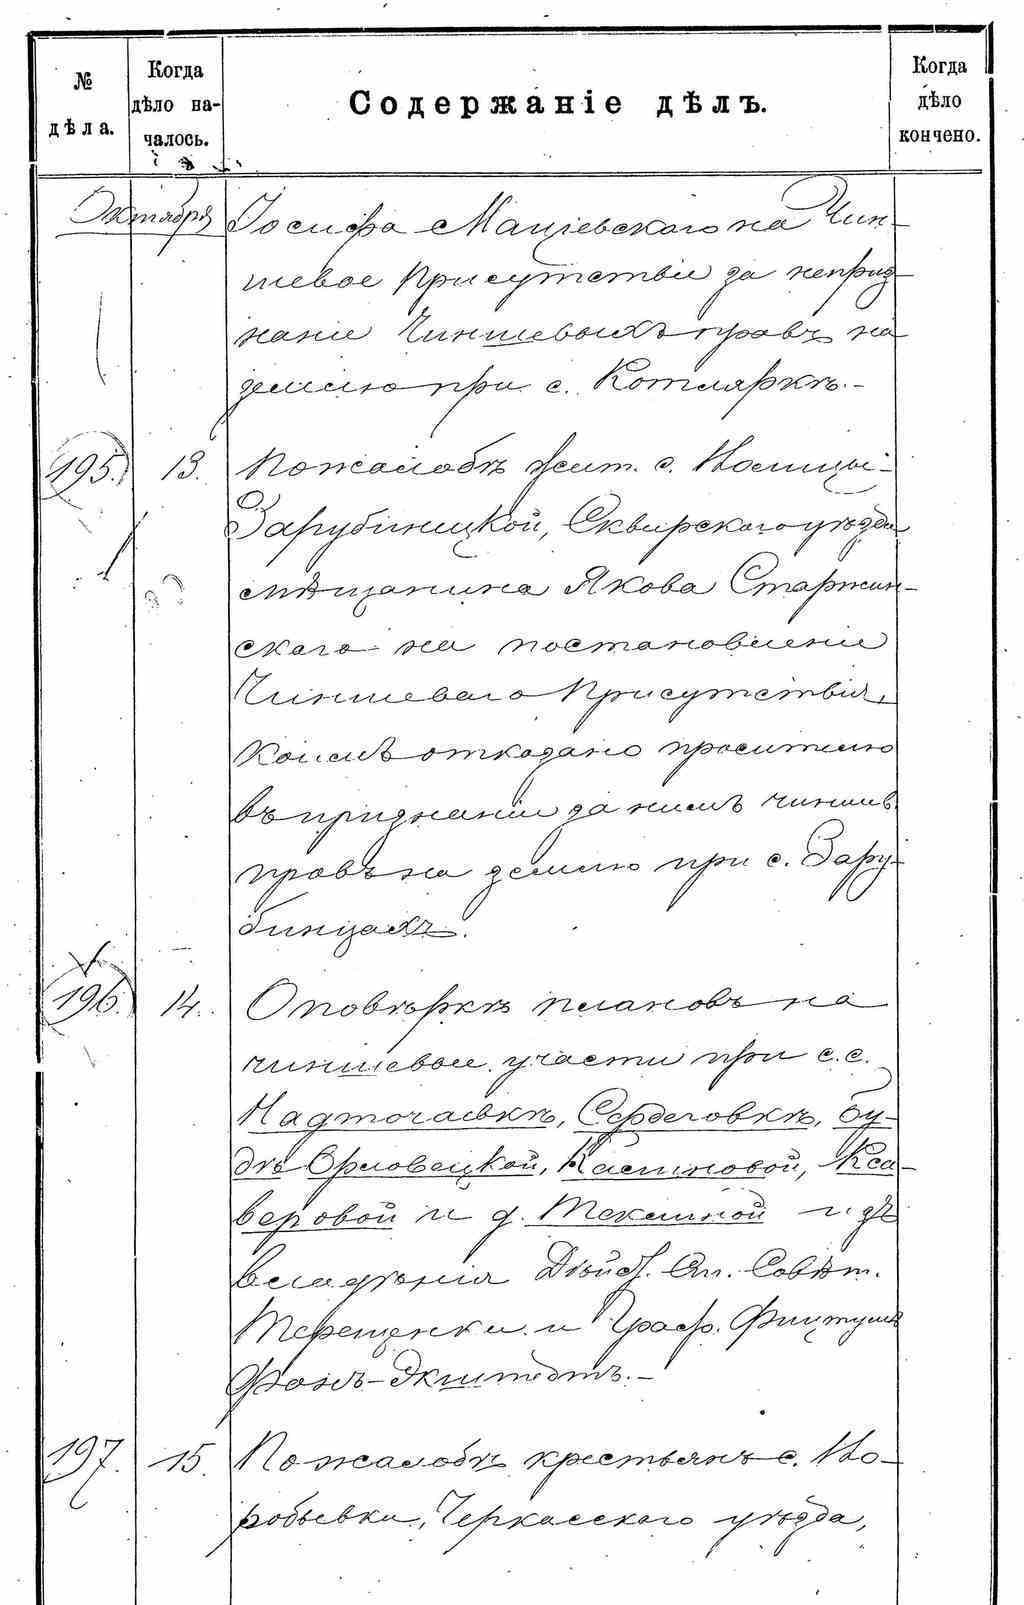 №
дѣла.
Когда
дѣло на-
чалось.
Содержаніе дѣлъ.
Когда
дѣло
кончено.
Октября
Іосифа Маціевскаго на Чин-
шевое Присутствіе за неприз-
наніе Чиншевыхъ правъ на
землю при с. Котляркѣ.-
195. 13. По жалобѣ жит. с.
Зарубинецкой, Сквирскаго уѣзда
мѣщанина Якова Старжин-
скаго на постановленіе
Чиншеваго Присутствія,
коимъ отказано просителю
въ признаніи за нимъ чиншев.
правъ на землю при с. Зару-
бинцахъ.
196. 14. О повѣркѣ плановъ на
чиншевые участи при с.с.
Надточаевкѣ, Сердеговкѣ, Бу-
дѣ Орловецкой, Калиновой, Кса-
веровой и д. Теклиной изъ
владѣнія Дѣйст. Ст. Совѣт.
Терещенки и Граф. Фицтумъ
Фонъ-Экштедтъ.-
197. 15. По жалобѣ крестьянъ с.
Черкасскаго уѣзда,